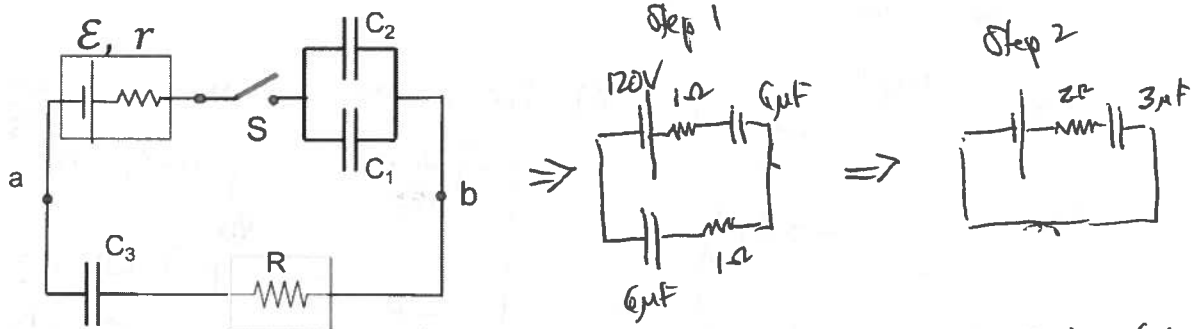 ℰ, r
C₂
S
C₁
a
b
C₃
R
Step 1
120V
1Ω
6μF
⇒
6μF
1Ω
⇒
Step 2
2Ω
3μF